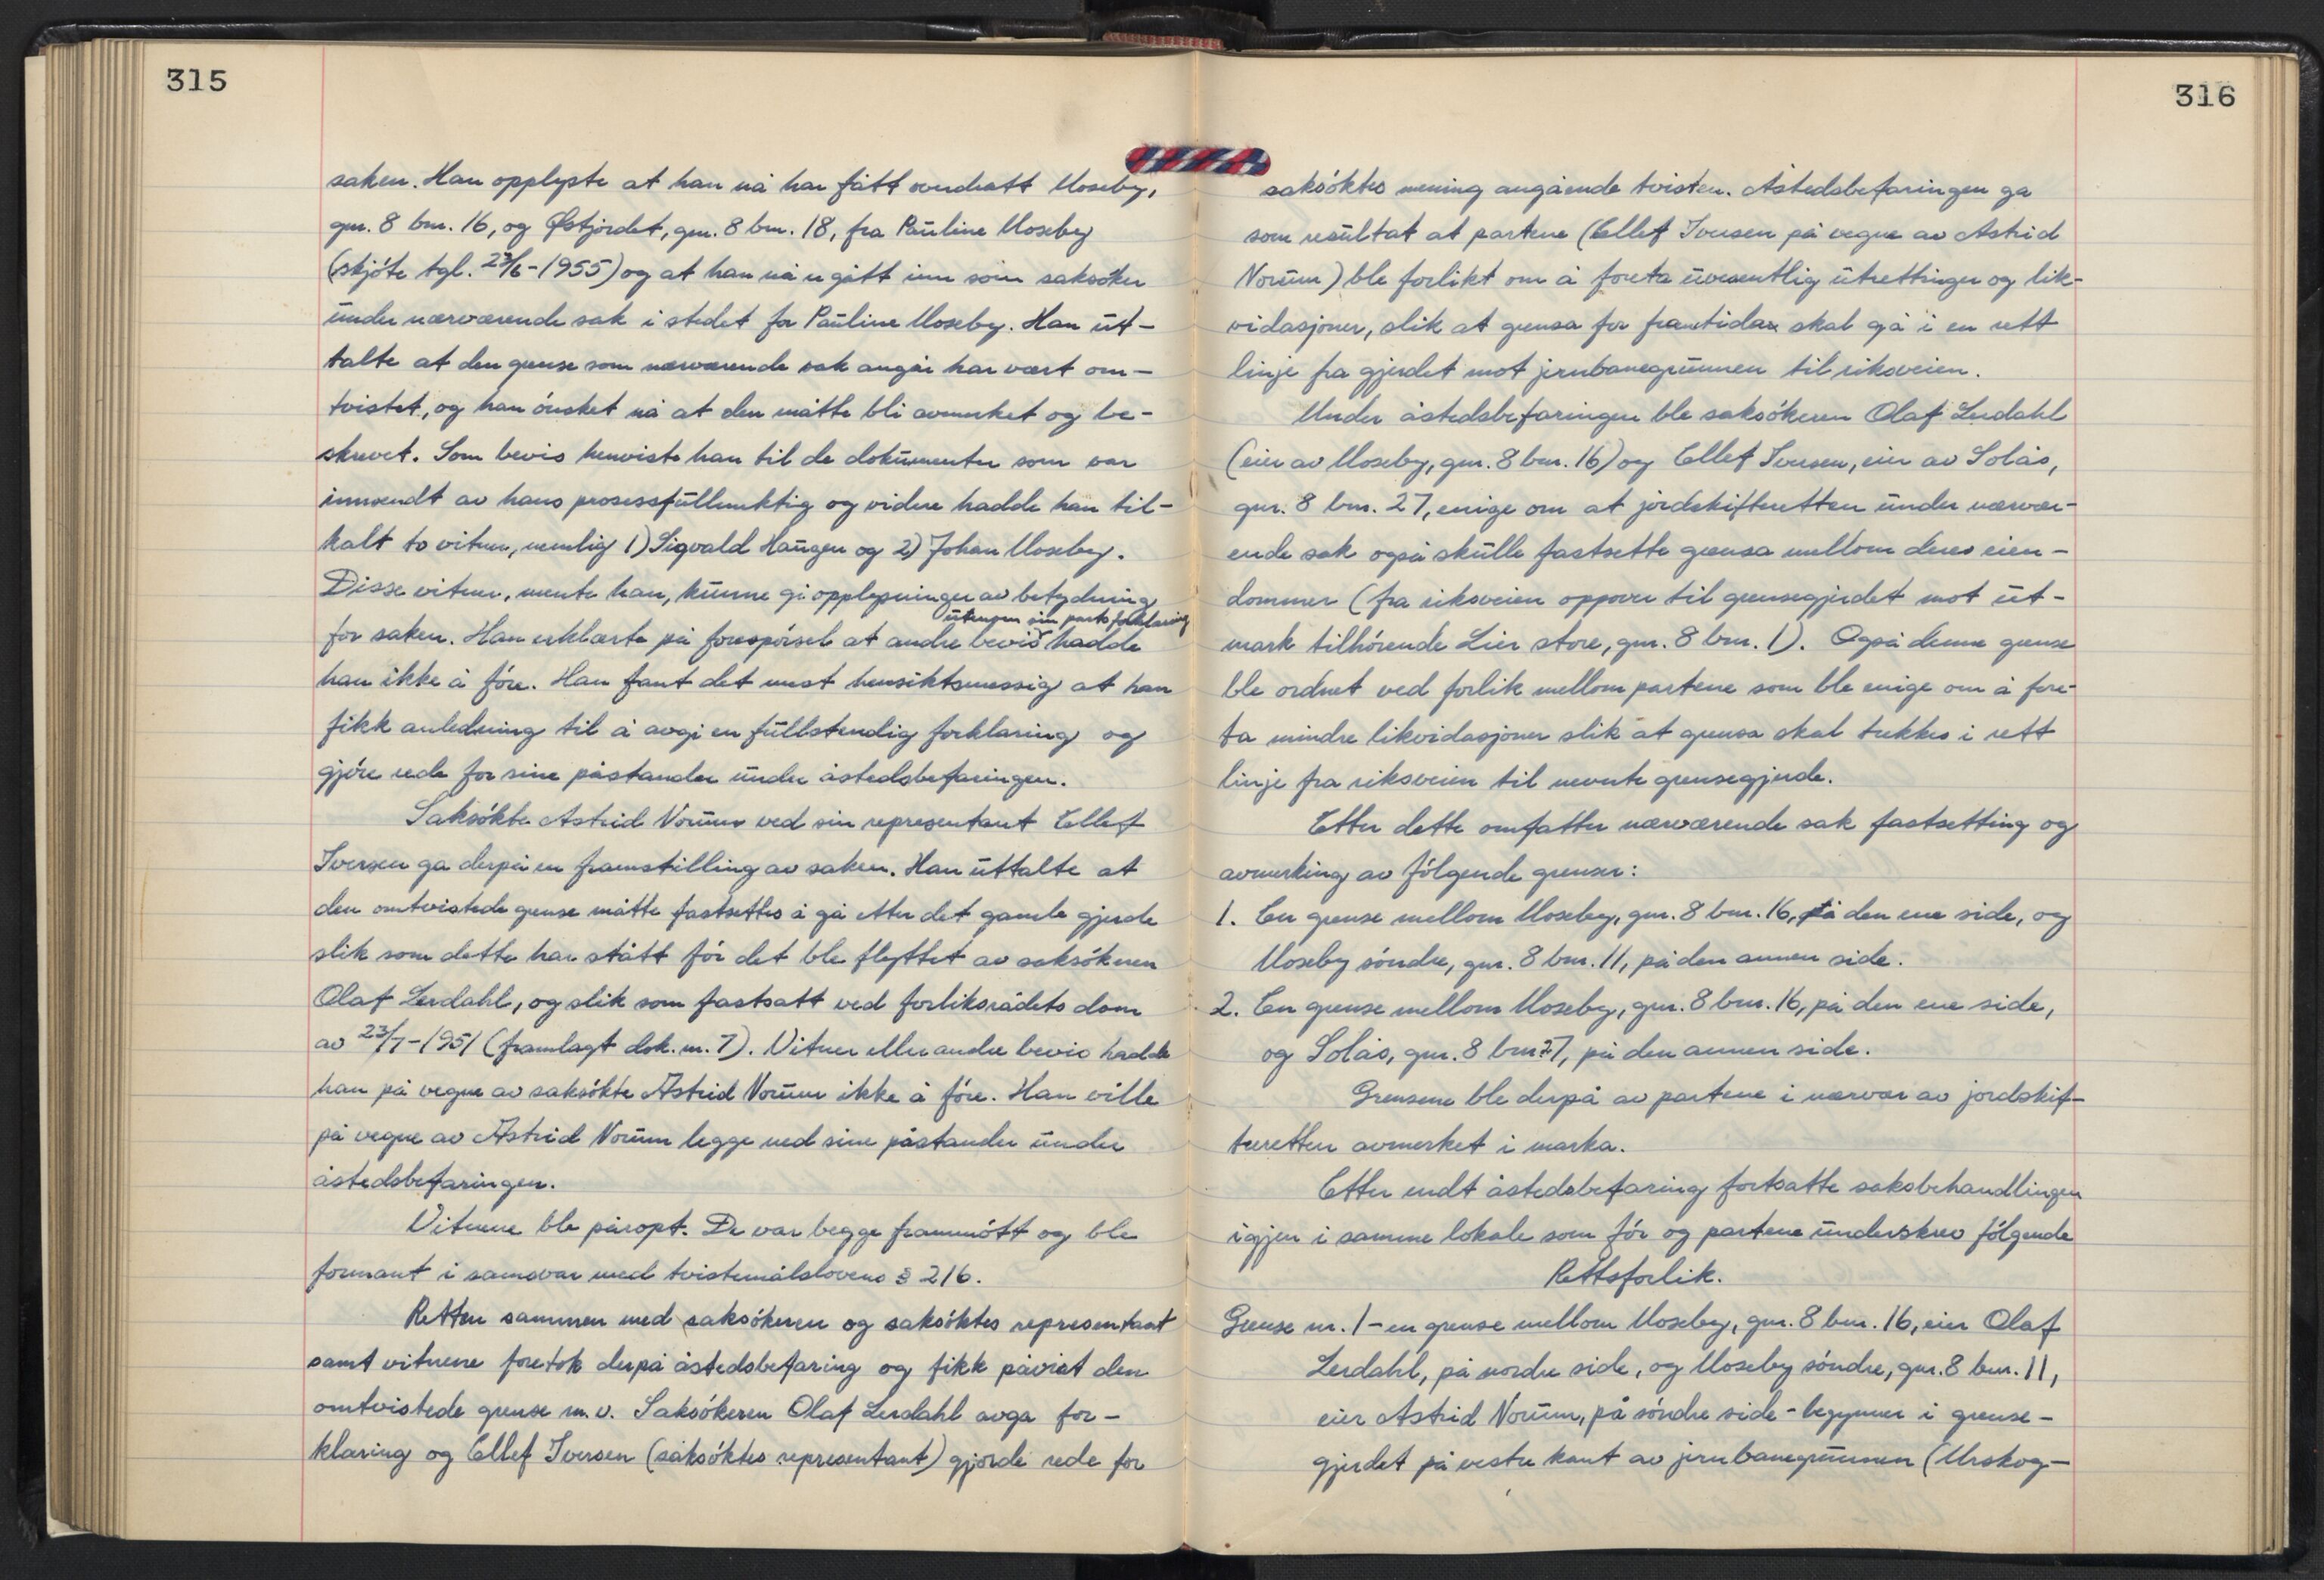 315
saken. Han opplyste at han nå har fått overdratt Moseby,
gnr. 8 bnr. 16, og Østjordet, gnr. 8 bnr. 18, fra Pauline Moseby
(skjøte tgl. 23/6-1955) og at han nå er gått inn som saksøker
under nærværende sak i stedet for Pauline Moseby. Han ut-
talte at den grense som nærværende sak angår har vært om-
tvistet, og han ønsket nå at den måtte bli avmerket og be-
skrevet. Som bevis henviste han til de dokumenter som var
innsendt av hans prosessfullmektig og videre hadde han til-
kalt to vitner, nemlig 1) Sigvald Haugen og 2) Johan Moseby.
Disse vitner, mente han, kunne gi opplysninger av betydning
utenom sin partsforklaring
for saken. Han erklærte på forespørsel at andre bevis hadde
han ikke å føre. Han fant det mest hensiktsmessig at han
fikk anledning til å avgi en fullstendig forklaring og
gjøre rede for sine påstander under åstedsbefaringen.
Saksøkte Astrid Norum ved sin representant Ellef
Iversen ga derpå en framstilling av saken. Han uttalte at
den omtvistede grense måtte fastsettes å gå etter det gamle gjerde
slik som dette har stått før det ble flyttet av saksøkeren
Olaf Lerdahl, og slik som fastsatt ved forliksrådets dom
av 23/7-1951 (framlagt dok. nr. 7). Vitner eller andre bevis hadde
han på vegne av saksøkte Astrid Norum ikke å føre. Han ville
på vegne av Astrid Norum legge ned sine påstander under
åstedsbefaringen.
Vitnene ble påropt. De var begge frammøtt og ble
formant i samsvar med tvistemålslovens § 216.
Retten sammen med saksøkeren og saksøktes representant
samt vitnene foretok derpå åstedsbefaring og fikk påvist den
omtvistede grense m.v. Saksøkeren Olaf Lerdahl avga for-
klaring og Ellef Iversen (saksøktes representant) gjorde rede for
316
saksøktes mening angående tvisten. Åstedsbefaringen ga
som resultat at partene (Ellef Iversen på vegne av Astrid
Norum) ble forlikt om å foreta uvesentlig utrettinger og lik-
vidasjoner, slik at grensa for framtida skal gå i en rett
linje fra gjerdet mot jernbanegrunnen til riksveien.
Under åstedsbefaringen ble saksøkeren Olaf Lerdahl
(eier av Moseby, gnr. 8 bnr. 16) og Ellef Iversen, eier av Solås,
gnr. 8 bnr. 27, enige om at jordskifteretten under nærvær-
ende sak også skulle fastsette grensa mellom deres eien-
dommer (fra riksveien oppover til grensegjerdet mot ut-
mark tilhørende Lier store, gnr. 8 bnr. 1). Også denne grense
ble ordnet ved forlik mellom partene som ble enige om å fore-
ta mindre likvidasjoner slik at grensa skal trekkes i rett
linje fra riksveien til nevnte grensegjerde.
Etter dette omfatter nærværende sak fastsetting og
avmerking av følgende grenser:
1. En grense mellom Moseby, gnr. 8 bnr. 16, på den ene side, og
Moseby søndre, gnr. 8 bnr. 11, på den annen side.
2. En grense mellom Moseby, gnr. 8 bnr. 16, på den ene side,
og Solås, gnr. 8 bnr 27, på den annen side.
Grensene ble derpå av partene i nærvær av jordskif-
teretten avmerket i marka.
Etter endt åstedsbefaring fortsatte saksbehandlingen
igjen i samme lokale som før og partene underskrev følgende
Rettsforlik.
Grense nr. 1 - en grense mellom Moseby, gnr. 8 bnr. 16, eier Olaf
Lerdahl, på nordre side, og Moseby søndre, gnr. 8 bnr. 11,
eier Astrid Norum, på søndre side - begynner i grense-
gjerdet på vestre kant av jernbanegrunnen (Urskog-